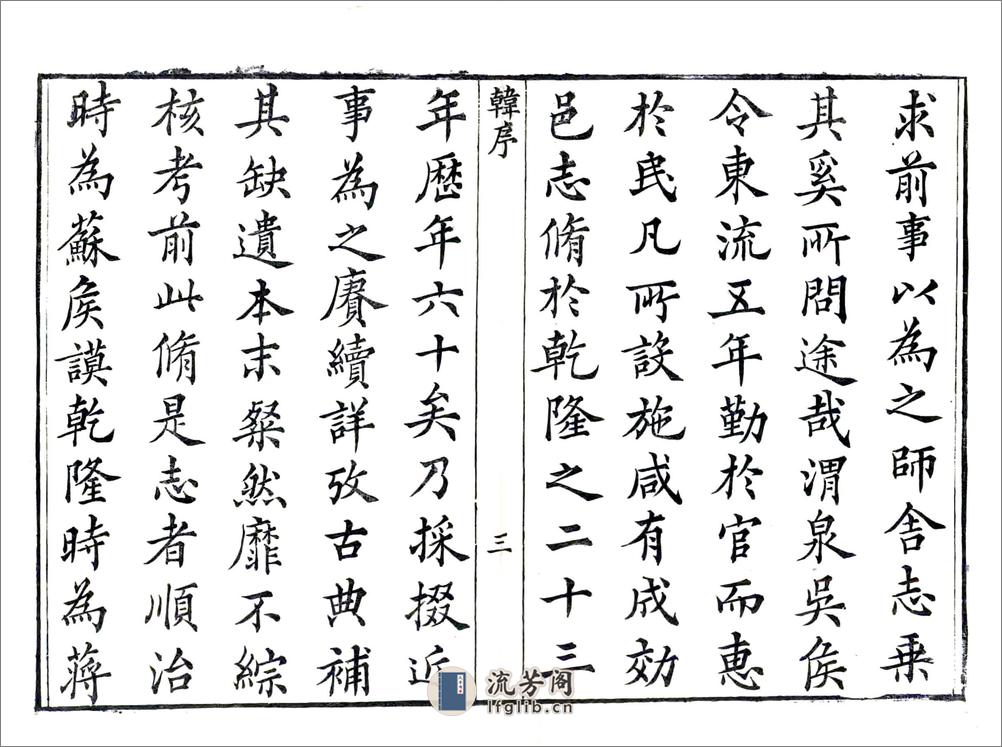 求前事以為之師舍志乗
其奚所問途哉渭泉吳侯
令東流五年勤於官而恵
於民凡所設施咸有成効
邑志脩於乾隆之二十三
韓序
三
年歷年六十矣乃採掇近
事為之賡續詳攷古典補
其缺遺本末粲然靡不綜
核考前此脩是志者順治
時為蘇侯謨乾隆時為蔣
流芳阁
lfglib.cn